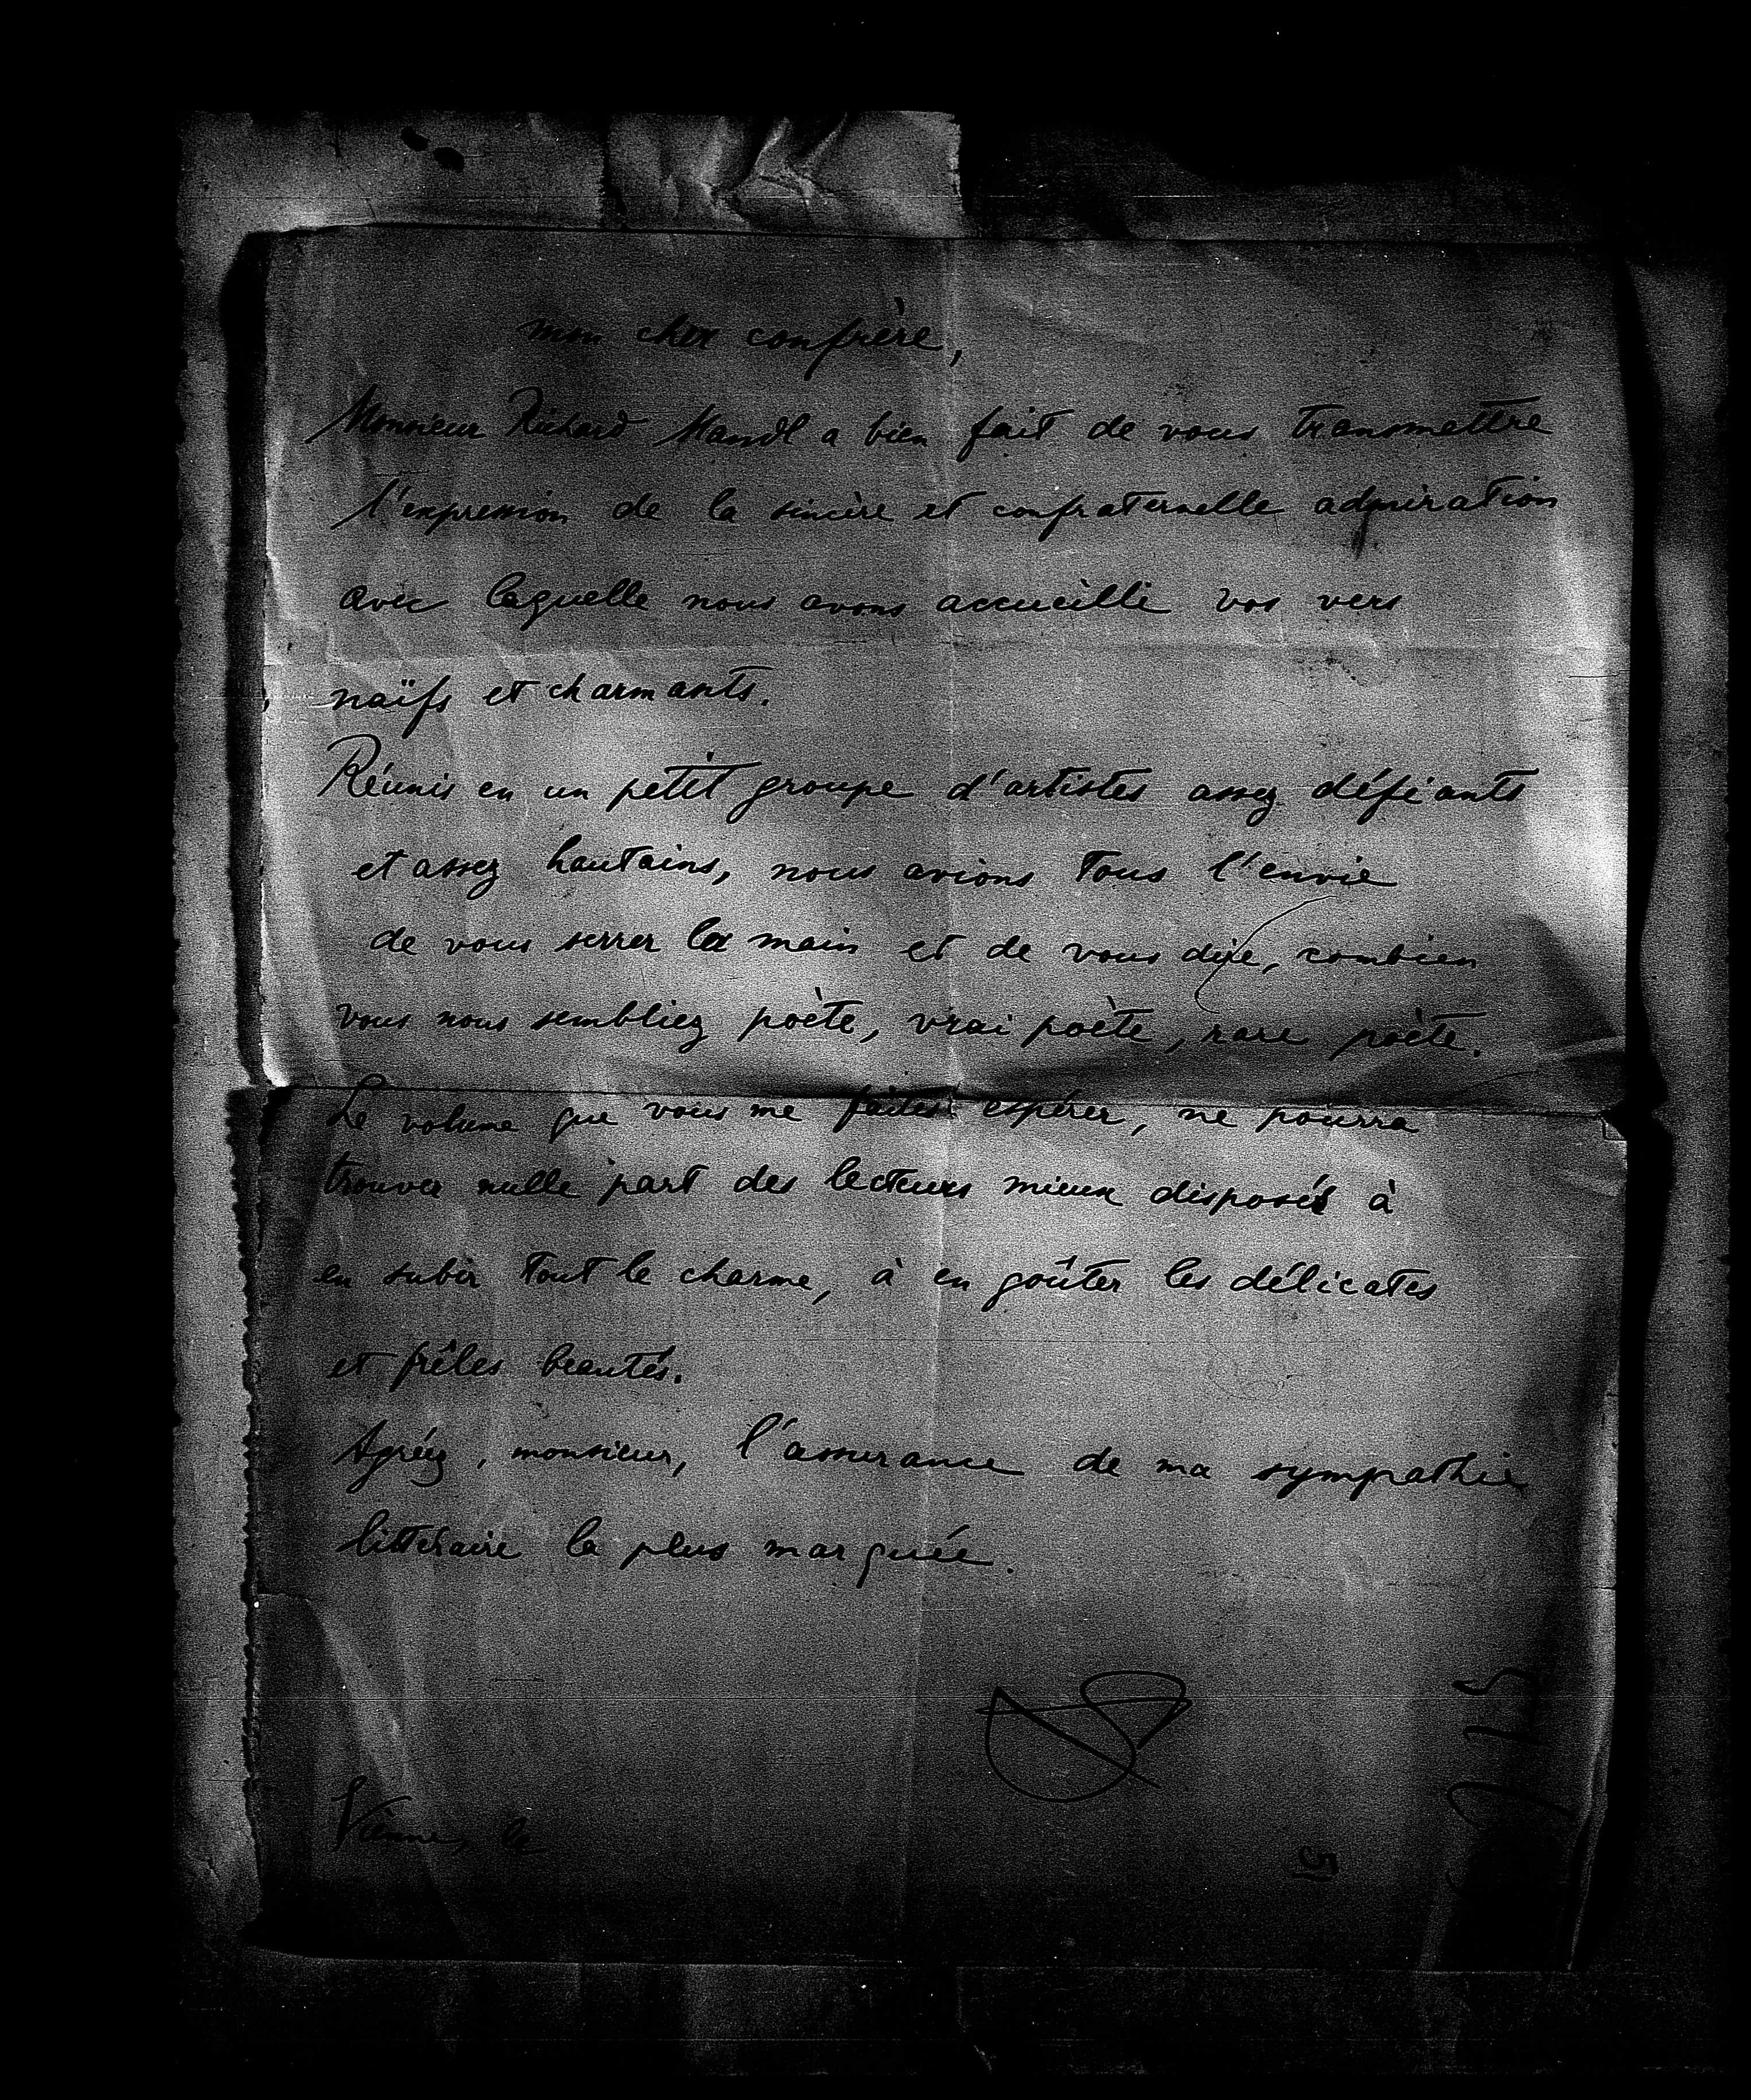 mon cher confrère,
Monsieur Richard Mandl a bien fait de vous transmettre
l'expression de la sincère et confraternelle admiration
avec laquelle nous avons accueilli vos vers
naïfs et charmants.
Réunis en un petit groupe d'artistes assez défiants
et assez hautains, nous avions tous l'envie
de vous serrer la main et de vous dire, combien
vous nous sembliez poète, vrai poète, rare poète.
Le volume que vous me faites espérer, ne pourra
trouver nulle part des lecteurs mieux disposés à
en subir tout le charme, à en goûter les délicates
et frêles beautés.
Agréez, monsieur, l'assurance de ma sympathie
littéraire la plus marquée.
Vienne, le
51